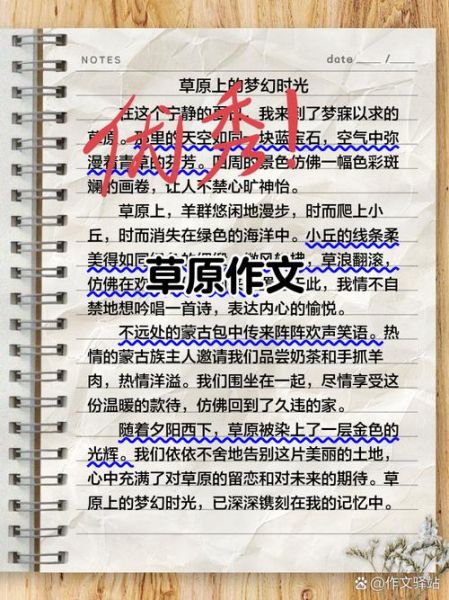 NOTES
date ___ /___
草原上的梦幻时光
优秀!
在这个宁静的，我来到了梦寐以求的
草原。那里的天空如同一块蓝宝石，空气中弥
漫着青草的芬芳。四周的景色仿佛一幅色彩斑
斓的画卷，让人不禁心旷神怡。
草原上，羊群悠闲地漫步，时而爬上小
丘，时而消失在绿色的海洋中。小丘的线条柔
美得如同，草浪翻滚，
草原作文
仿佛在此，我情不自
禁地想吟唱一首诗，表达内心的愉悦。
不远处的蒙古包中传来阵阵欢声笑语。热
情的蒙古族主人邀请我们品尝奶茶和手抓羊
肉，热情洋溢。我们围坐在一起，尽情享受这
份温暖的款待，仿佛回到了久违的家。
随着夕阳西下，草原被染上了一层金色的
光辉。我们依依不舍地告别这片美丽的土地，
心中充满了对草原的留恋和对未来的期待。草
原上的梦幻时光，已深深镌刻在我的记忆中。
@作文驿站